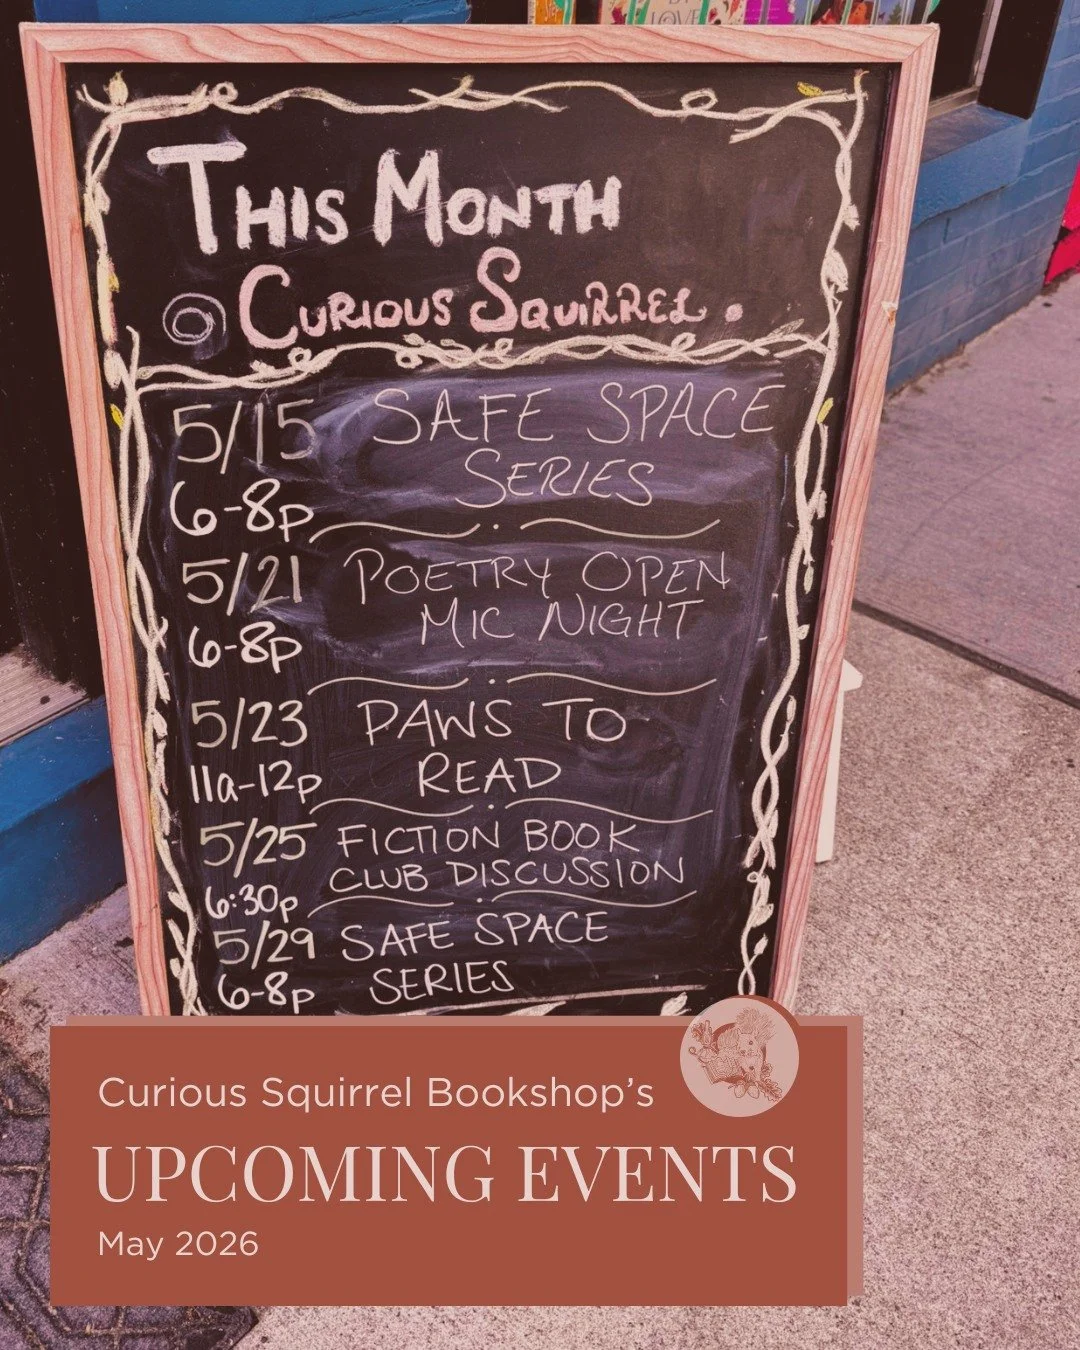 LOVE
THIS MONTH
@ CURIOUS SQUIRREL.
5/15 SAFE SPACE
SERIES
6-8p
5/21 POETRY OPEN
MIC NIGHT
6-8p
5/23 PAWS TO
11a-12p READ
5/25 FICTION BOOK
CLUB DISCUSSION
6:30p
5/29 SAFE SPACE
6-8p SERIES
Curious Squirrel Bookshop's
UPCOMING EVENTS
May 2026